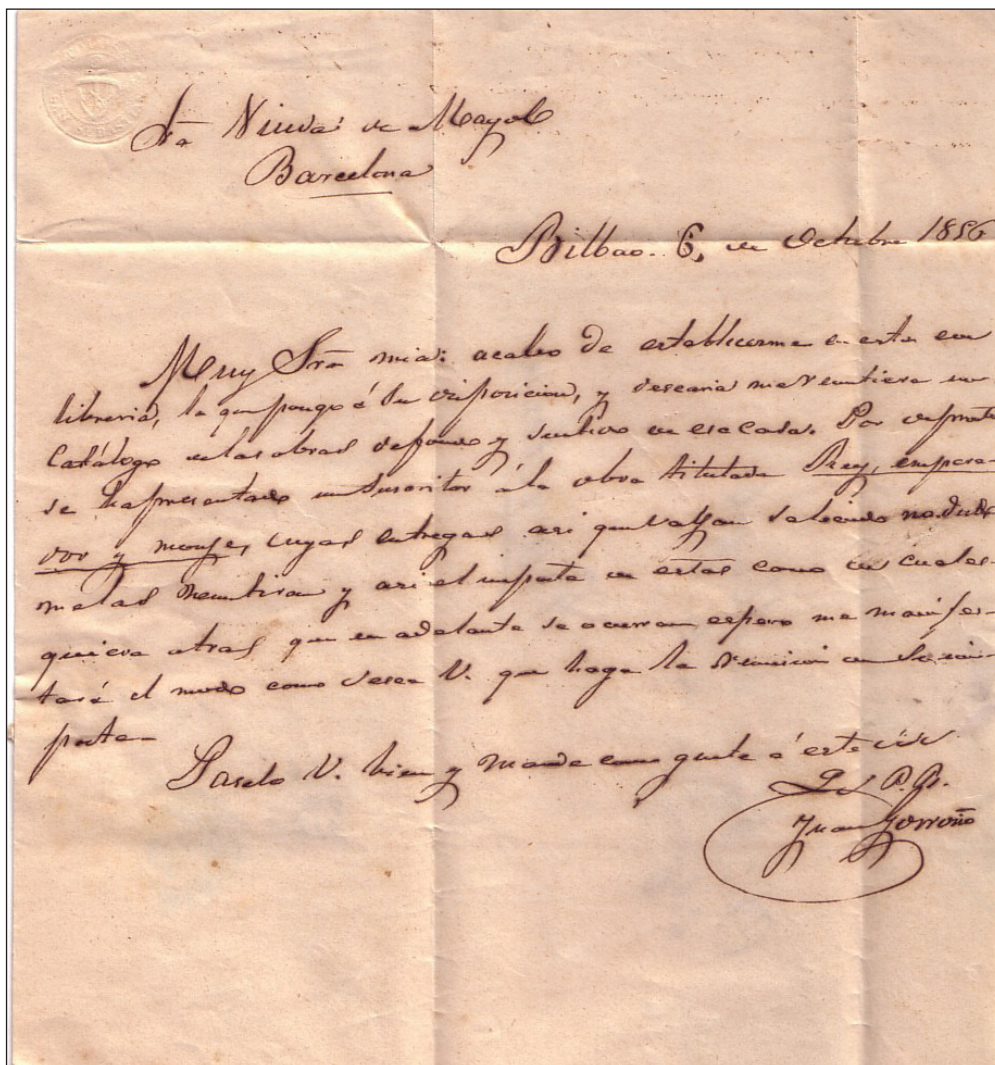 SAN SEBASTIAN
Sra Viuda de Mayol
Barcelona
Bilbao. 6, de Octubre 1856
Muy Sra mia: acabo de establecerme en esta con
libreria, la que pongo á su disposicion, y desearia me remitiera un
Catálogo de las obras de fondo y surtido de esa Casa. Por de pronto
se ha presentado un suscritor á la obra titulada Rey, empera
dor y monje, cuyas entregas asi que vallan saliendo no dude
me las remitiran y asi el importe de estas como de cuales-
quiera otras que en adelante se ocurran espero me manifes-
tará el modo como desea V. que haga la remision de su im-
porte.
Paselo V. bien y mande como guste á este
Juan Gorroño